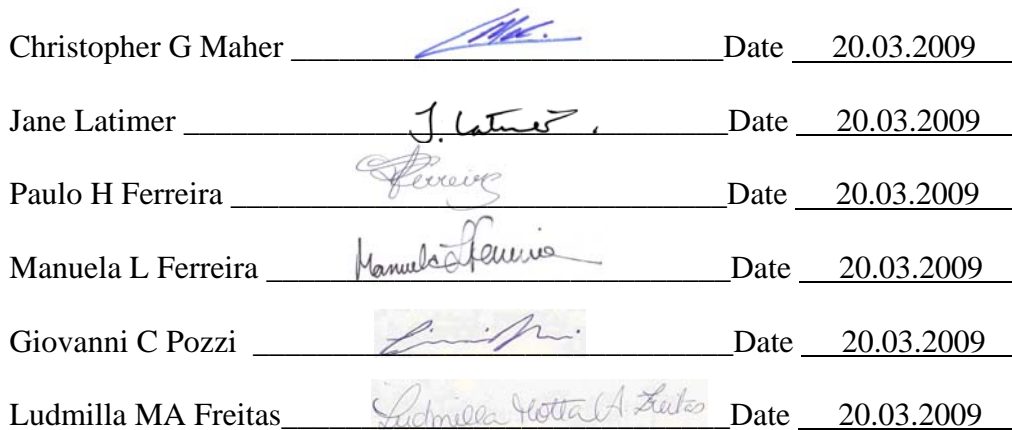 Christopher G Maher Date 20.03.2009
Jane Latimer J. Latimer Date 20.03.2009
Paulo H Ferreira Ferreira Date 20.03.2009
Manuela L Ferreira Manuela L Ferreira Date 20.03.2009
Giovanni C Pozzi Date 20.03.2009
Ludmilla MA Freitas Ludmilla Motta A Freitas Date 20.03.2009